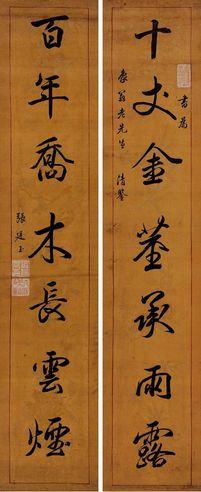 十丈金莖承雨露
書為
翁老先生 清鑒
百年喬木長雲煙
張廷玉